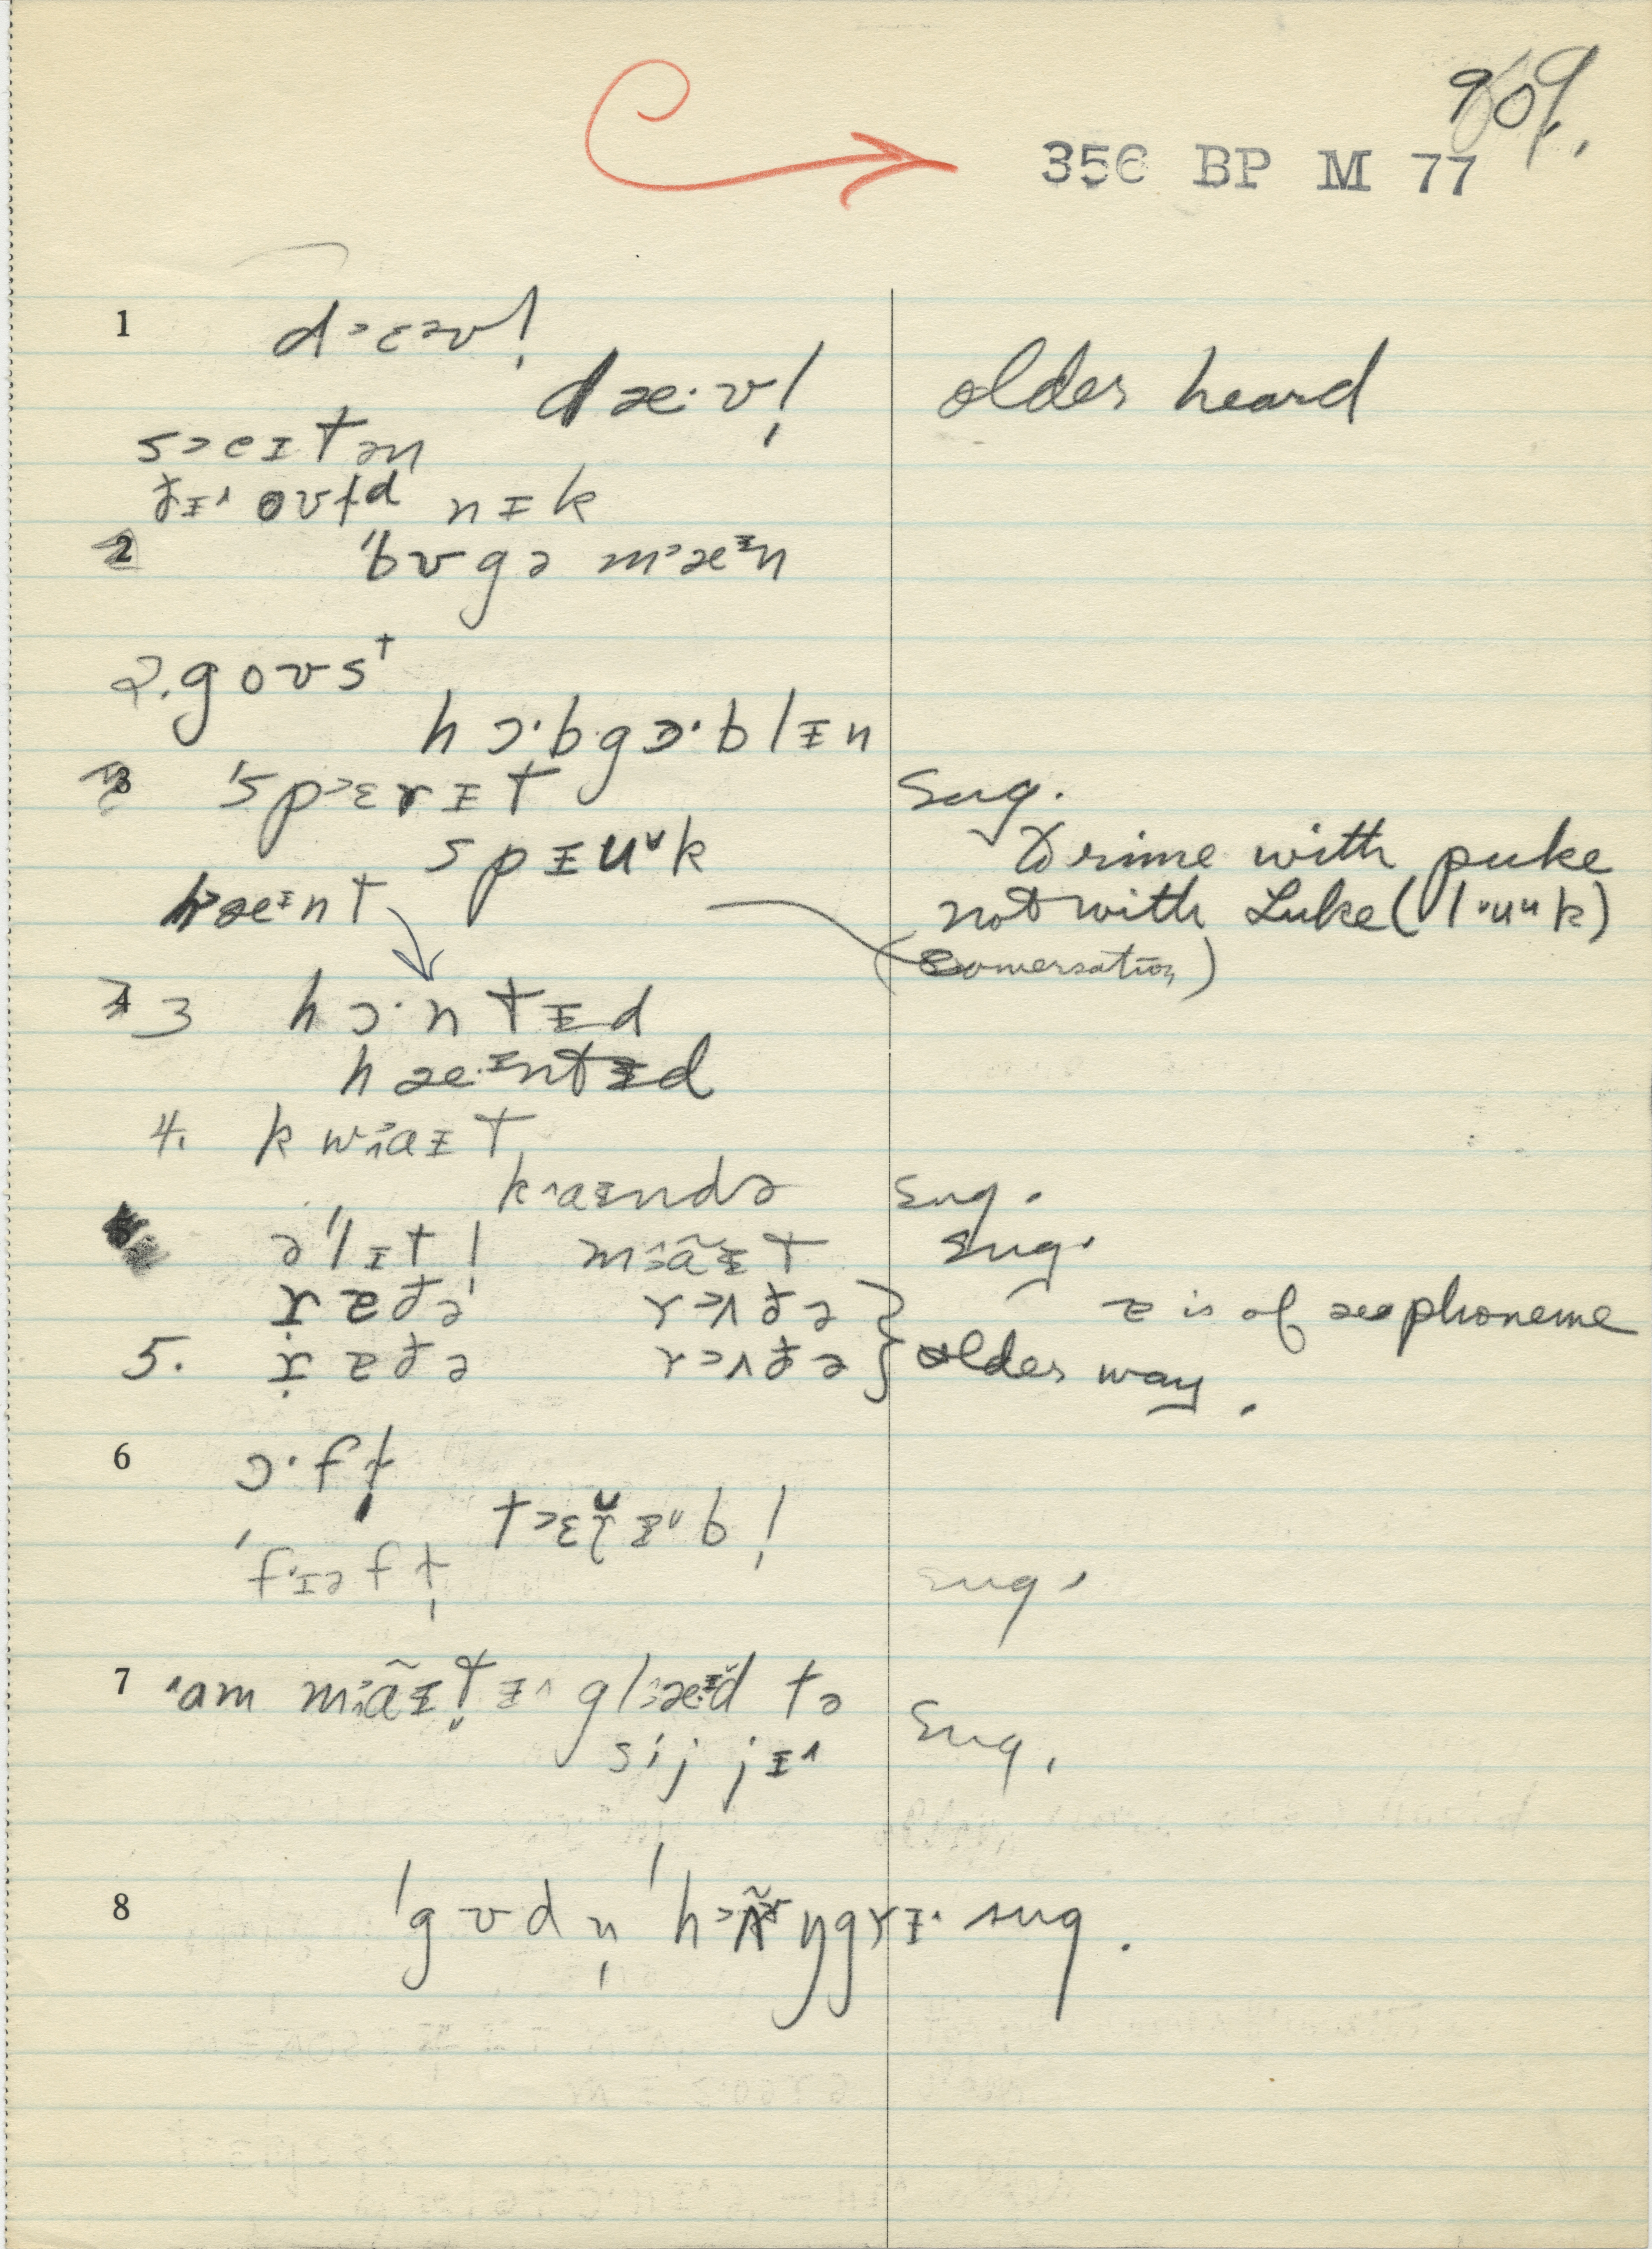 90%.
356 BP M 77
1 d˃ɛəv!
dæ·v! older heard
s˃eɪtən
ðɪ˄ oʊɫd nɪk
2 ˈbʊgə m˃æᶦn
2. goʊsᵗ
hɔ·bgɔ·blɪn
3 ˈsp˃ɛrɪt sug.
spɪuᵛk to rime with puke
h˃æᶦnt not with Luke (lᵛuᵘk)
(conversation)
3 hɔ·ntɪd
hæ·ᶦntɪd
4. kw˃aɪt
k˄aɪndə sug.
əˈlɪt! m˃ãɪt sug.
ræðə r˃ʌðə } æ is of æ phoneme
5. ræðə r˃ʌðə } older way.
6 ɔ·fɫ
ˈf·ɪəfɫ sug.
7 ˄am m˃ãɪtɪ˄ gl˃æᶦd tə
sij jɪ˄ sug.
8 ˈgʊdn̩ ˈh˃ʌ̃ŋgrɪ· sug.